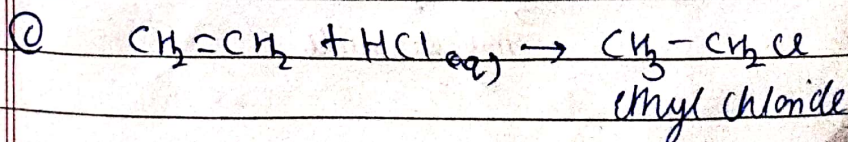 (c) CH₂=CH₂ + HCl(aq) → CH₃-CH₂Cl
ethyl chloride